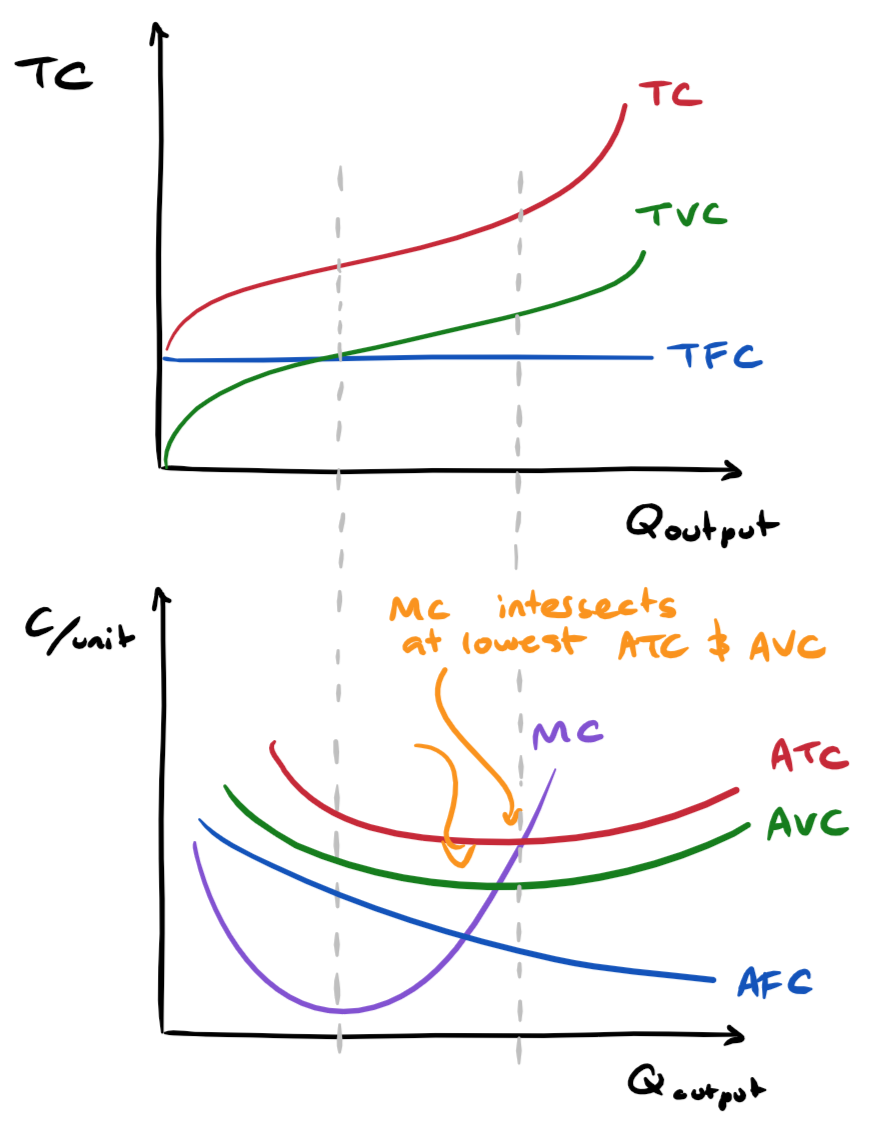 TC
TC
TVC
TFC
Qoutput
C/unit
MC intersects
at lowest ATC & AVC
MC
ATC
AVC
AFC
Qoutput